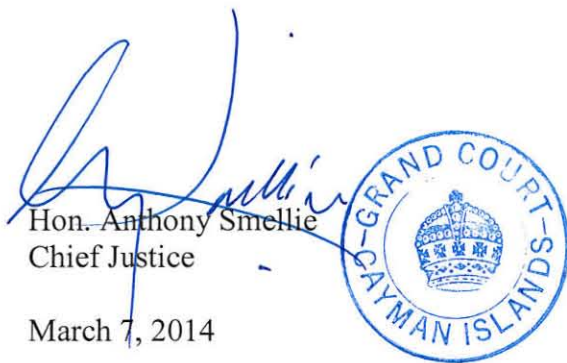 Hon. Anthony Smellie
Chief Justice
March 7, 2014
GRAND COURT
CAYMAN ISLANDS